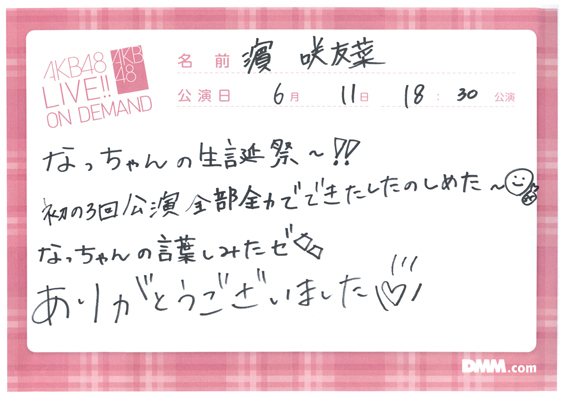 AKB48
LIVE!!
ON DEMAND
AKB
48
名前 濵 咲友菜
公演日 6月 11日 18:30 公演
なっちゃんの生誕祭～!!
初の3回公演全部全力でできたしたのしめた～
なっちゃんの言葉しみたゼ
ありがとうございました
DMM.com